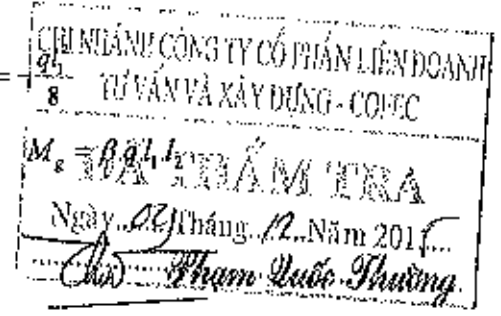 CHI NHÁNH CÔNG TY CỔ PHẦN LIÊN DOANH
= ql₁
8
TƯ VẤN VÀ XÂY DỰNG - COFEC
M_g = β q l₁ l₂
ĐÃ THẨM TRA
Ngày 02 Tháng 12 Năm 201
Phạm Quốc Thường